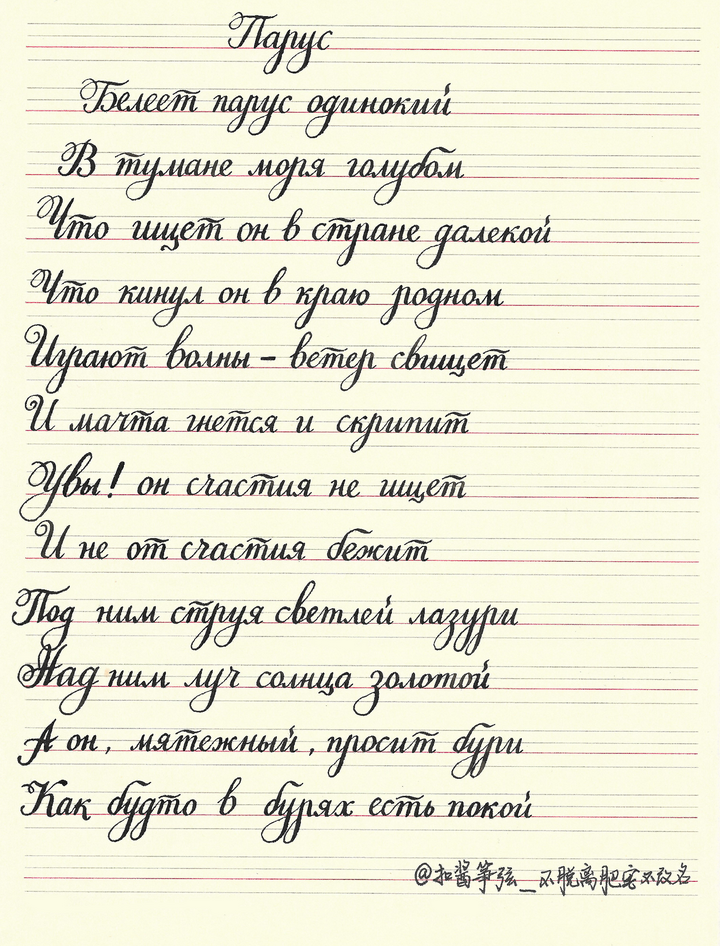 Парус
Белеет парус одинокий
В тумане моря голубом
Что ищет он в стране далекой
Что кинул он в краю родном
Играют волны – ветер свищет
И мачта гнется и скрипит
Увы! он счастия не ищет
И не от счастия бежит
Под ним струя светлей лазури
Над ним луч солнца золотой
А он, мятежный, просит бури
Как будто в бурях есть покой
@扣酱筝弦_不脱离肥宅不改名